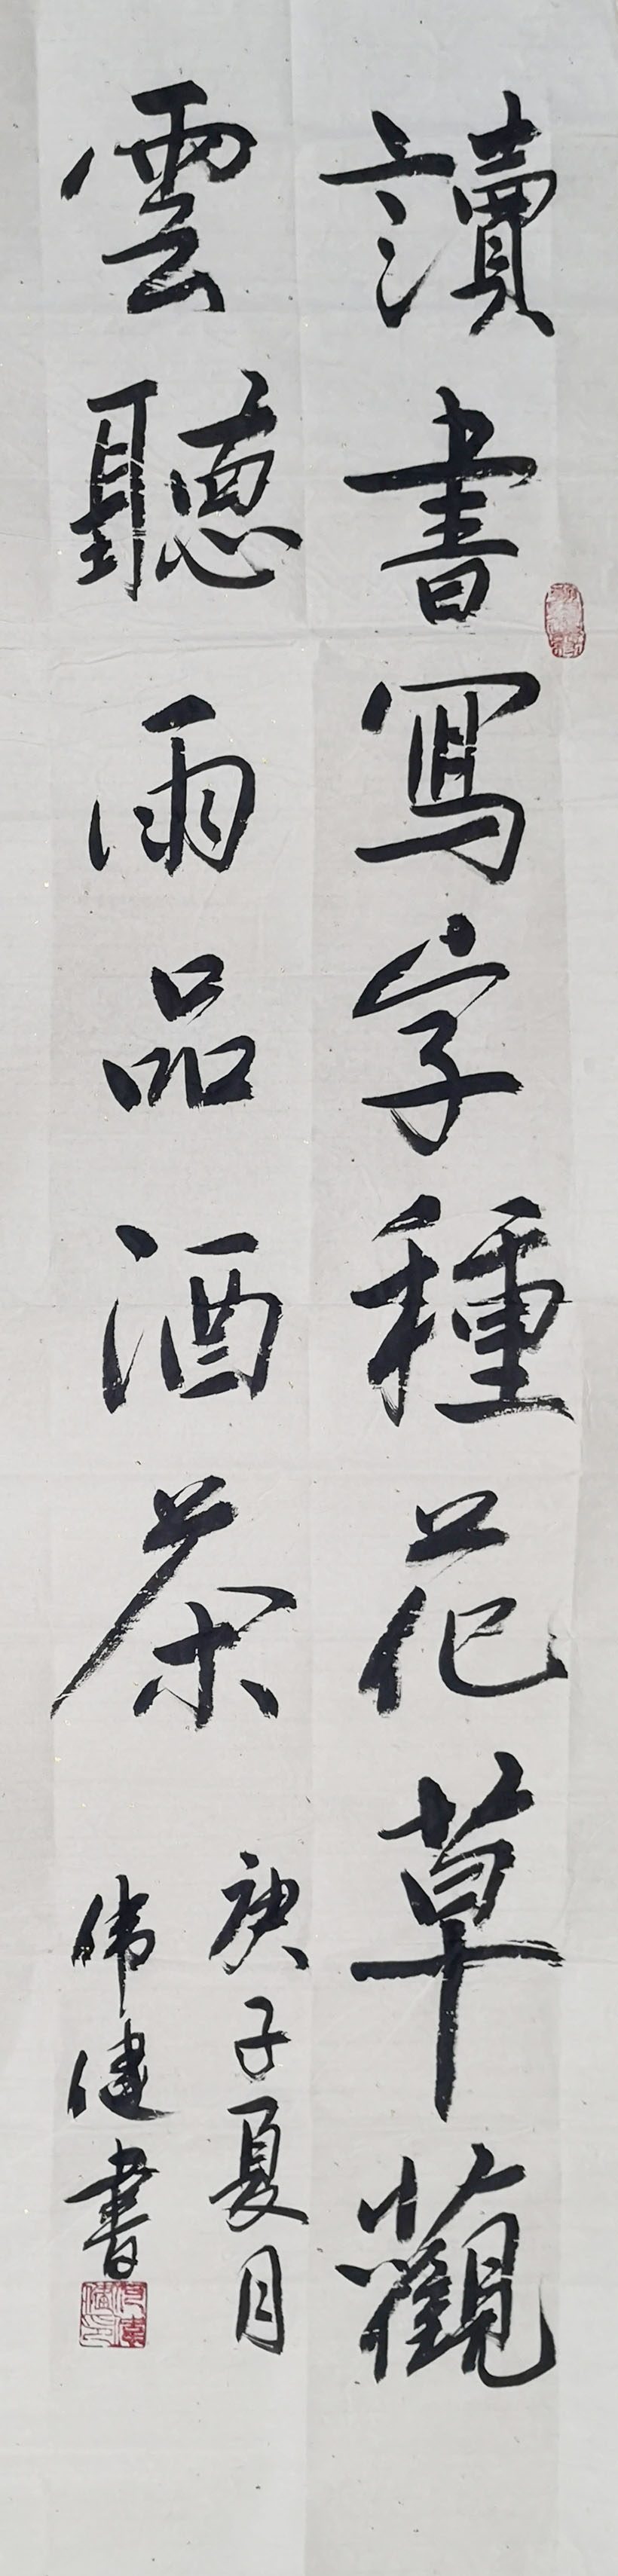 讀書寫字種花草觀
雲聽雨品酒茶
庚子夏月
伟健書